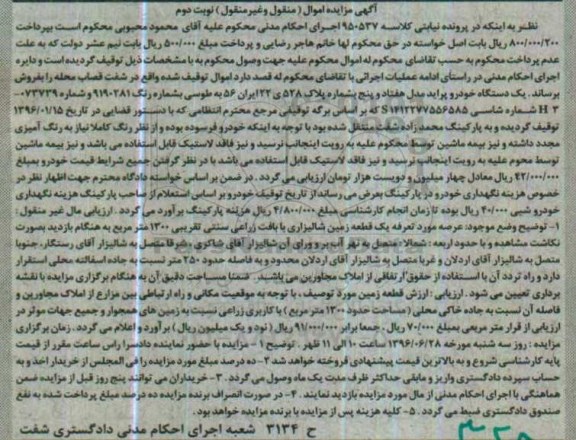 آگهی مزایده اموال (منقول وغیر منقول) نوبت دوم
نظر به اینکه در پرونده نیابتی کلاسه ۹۵۰۵۳۷ اجرای احکام مدنی محکوم علیه آقای محمود محبوبی محکوم است بپرداخت
۸۰۰/۰۰۰/۲۰۰ ریال بابت اصل خواسته در حق محکوم لها خانم هاجر رضایی و پرداخت مبلغ ۵۰۰/۰۰۰ ریال بابت نیم عشر دولت که به علت
عدم پرداخت محکوم به حسب تقاضای محکوم له اموال محکوم علیه جهت وصول محکوم به با مشخصات ذیل توقیف گردیده است و دایره
اجرای احکام مدنی در راستای ادامه عملیات اجرائی با تقاضای محکوم له قصد دارد اموال توقیف شده واقع در شفت قصاب محله را بفروش
برساند. یک دستگاه خودرو پراید مدل هفتاد و پنج بشماره پلاک ۵۲۸ ی ۲۲ ایران ۵۶ به طوسی بشماره رنگ ۹۱۹۰۲۸۱ و شماره ۰۷۳۷۳۹-
H ۳ شماره شاسی S۱۴۱۲۲۷۷۵۵۶۵۸۵ که بر اساس برگه توقیفی مرجع محترم انتظامی که با دستور قضایی در تاریخ ۱۳۹۶/۰۱/۱۵
توقیف گردیده و به پارکینگ محمد زاده شفت منتقل شده بود با توجه به اینکه خودرو فرسوده بوده و از نظر رنگ کاملا نیاز به رنگ آمیزی
مجدد داشته و نیز بیمه ماشین توسط محکوم علیه به رویت اینجانب نرسید و نیز فاقد لاستیک قابل استفاده می باشد و نیز بیمه ماشین
توسط محوم علیه به رویت اینجانب نرسید و نیز فاقد لاستیک قابل استفاده می باشد با در نظر گرفتن جمیع شرایط قیمت خودرو بمبلغ
۴۲/۰۰۰/۰۰۰ ریال معادل چهار میلیون و دویست هزار تومان ارزیابی می گردد. در ضمن بر اساس خواسته دادگاه محترم جهت اظهار نظر در
خصوص هزینه نگهداری خودرو در پارکینگ بعرض می رساند از تاریخ توقیف خودرو بر اساس استعلام از صاحب پارکینگ هزینه نگهداری
خودرو شبی ۴۰/۰۰۰ ریال بوده تا زمان انجام کارشناسی مبلغ ۴/۸۰۰/۰۰۰ ریال هزینه پارکینگ برآورد می گردد. ارزیابی مال غیر منقول:
۱- توضیح وضع موجود: عرصه مورد تعرفه یک قطعه زمین شالیزاری با بافت زراعی سنتی تقریبی ۱۳۰۰ متر مربع به هنگام بازدید بصورت
نکاشت مشاهده و با حدود اربعه: شمالا: متصل به نهر آب بر و ورای آن شالیزار آقای شاکری. شرقا متصل به شالیزار آقای رستگار. جنوبا
متصل به شالیزار آقای اردلان و غربا متصل به شالیزار آقای اردلان محدود و به فاصله حدود ۲۵۰ متر نسبت به جاده آسفالته محلی استقرار
دارد و راه تردد آن با استفاده از حقوق ارتفاقی از املاک مجاورین می باشد. ضمنا مساحت دقیق آن به هنگام برگزاری مزایده با نقشه
برداری تعیین می شود. ارزیابی: ارزش قطعه زمین مورد توصیف، با توجه به موقعیت مکانی و راه ارتباطی بین مزارع از املاک مجاورین و
فاصله آن نسبت به جاده خاکی محلی (مساحت حدود ۱۳۰۰ متر مربع) با کاربری زراعی نسبت به زمین های همجوار و جمیع جهات موثر در
ارزیابی از قرار متر مربعی بمبلغ ۷۰/۰۰۰ ریال. جمعا برابر ۹۱/۰۰۰/۰۰۰ ریال (نود و یک میلیون ریال) برآورد و اعلام می گردد. زمان برگزاری
مزایده: روز سه شنبه مورخه ۱۳۹۶/۰۶/۲۸ ساعت ۱۰ الی ۱۱ ظهر. توضیح ۱- مزایده با حضور نماینده دادسرا راس ساعت مقرر از قیمت
پایه کارشناسی شروع و به بالاترین قیمت پیشنهادی فروخته خواهد شد ۲- ده درصد مبلغ مورد مزایده را فی المجلس از خریدار اخذ و به
حساب سپرده دادگستری واریز و مابقی حداکثر ظرف مدت یک ماه وصول می گردد. ۳- خریداران می توانند پنج روز قبل از مزایده ضمن
هماهنگی با اجرای احکام مدنی از مال مورد مزایده بازدید نمایند. ۴- در صورت انصراف برنده مزایده ده درصد مبلغ پرداخت شده به نفع
صندوق دادگستری ضبط می گردد. ۵- کلیه هزینه پس از مزایده با برنده مزایده خواهد بود.
ح ۳۱۳۴ شعبه اجرای احکام مدنی دادگستری شفت